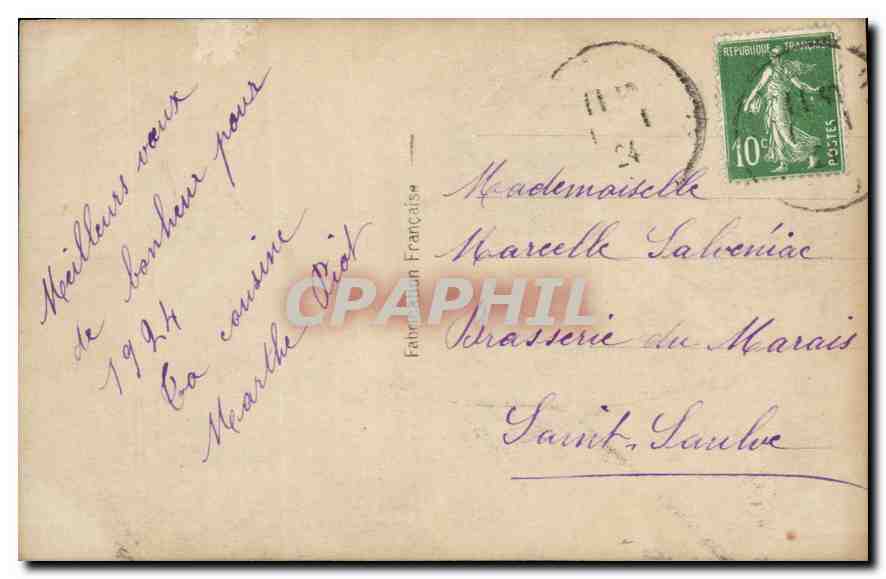 Meilleurs vœux
de bonheur pour
1924
Ta cousine
Marthe Piot
Fabrication Française
REPUBLIQUE FRANÇAISE
10c
POSTES
11
1
24
Mademoiselle
Marcelle Salveniac
Brasserie du Marais
Saint-Saulve
CPAPHIL